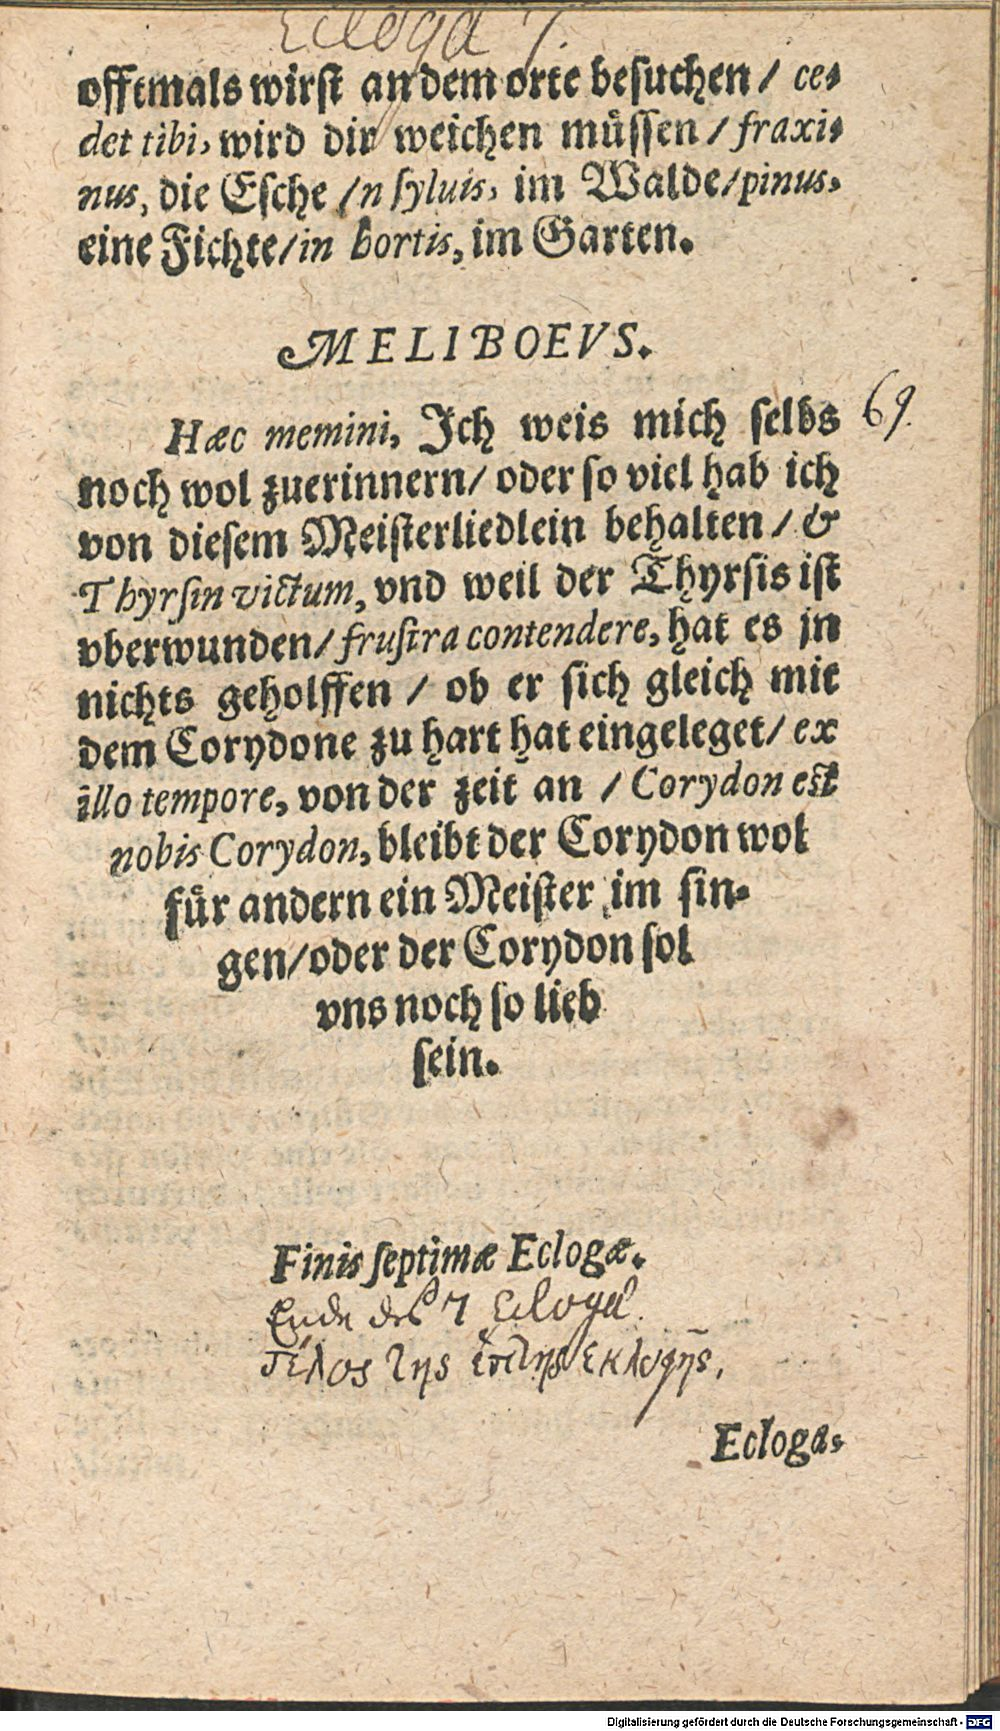 Ecloga 7.
offtmals wirst an dem orte besuchen / ce⸗
det tibi, wird dir weichen müssen / fraxi⸗
nus, die Esche / n syluis, im Walde / pinus,
eine Fichte / in hortis, im Garten.
MELIBOEVS.
Hæc memini, Ich weis mich selbs
69.
noch wol zuerinnern / oder so viel hab ich
von diesem Meisterliedlein behalten / &
Thyrsin victum, vnd weil der Thyrsis ist
vberwunden / frustra contendere, hat es jn
nichts geholffen / ob er sich gleich mit
dem Corydone zu hart hat eingeleget / ex
illo tempore, von der zeit an / Corydon est
nobis Corydon, bleibt der Corydon wol
für andern ein Meister im sin⸗
gen / oder der Corydon sol
vns noch so lieb
sein.
Finis septimæ Eclogæ.
Ende des 7 Eclogae.
τέλος της ἑπτης ἐκλογῆς.
Ecloga,
Digitalisierung gefördert durch die Deutsche Forschungsgemeinschaft - DFG